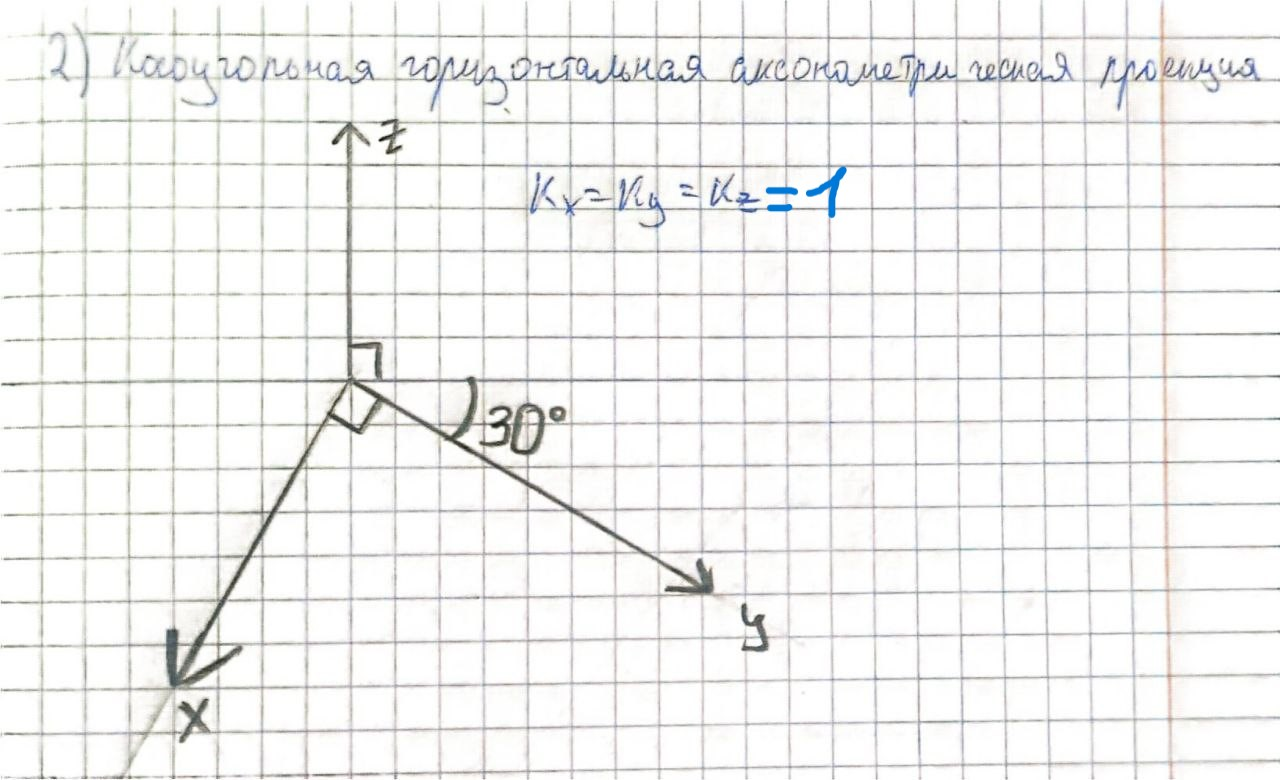 2) Косоугольная горизонтальная аксонометрическая проекция
z
Kx = Ky = Kz = 1
30°
y
x